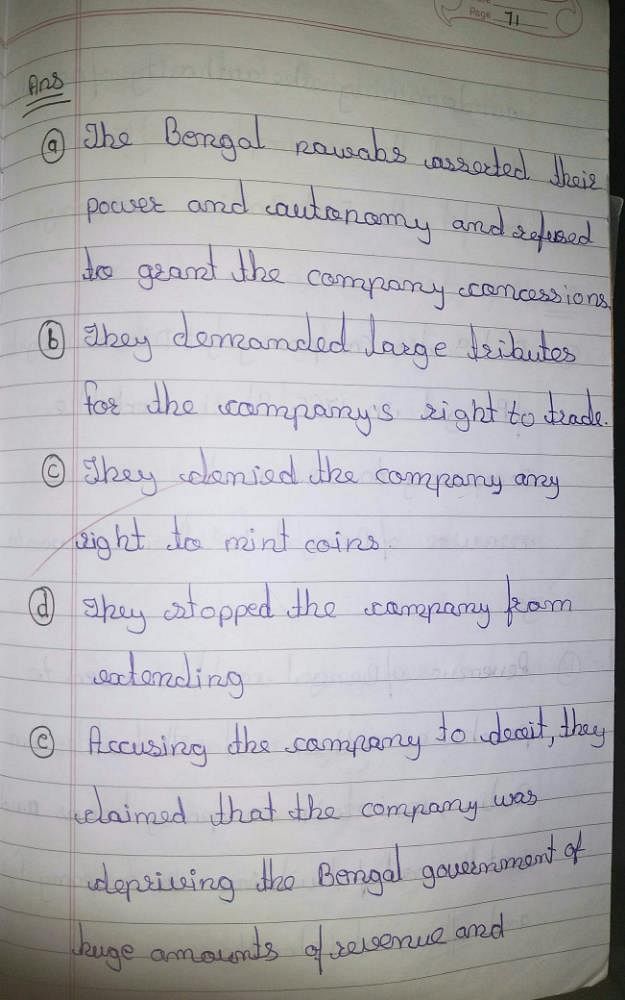 Page 71
Ans
(a) The Bengal nawabs asserted their
power and autonomy and refused
to grant the company concessions.
(b) They demanded large tributes
for the company's right to trade.
(c) They denied the company any
right to mint coins.
(d) They stopped the company from
extending
(e) Accusing the company to deceit, they
claimed that the company was
depriving the Bengal government of
huge amounts of revenue and